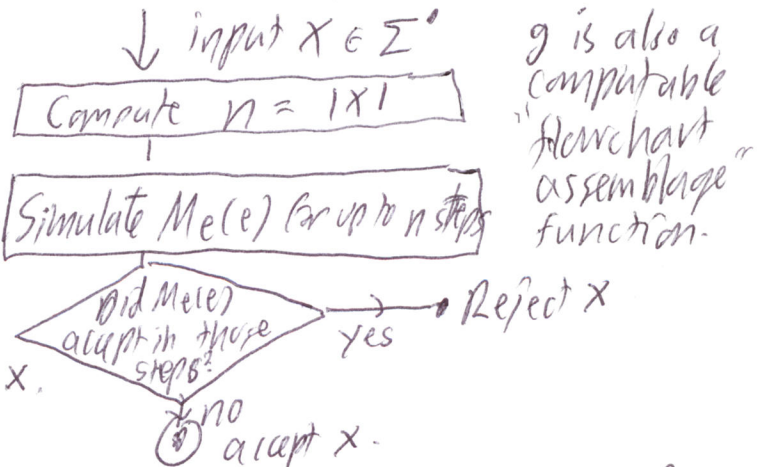 input X ∈ Σ*
Compute n = |X|
Simulate Me(e) for up to n steps
Did Me(e)
accept in those
steps?
yes
Reject X
X.
no
accept X.
g is also a
computable
"flowchart
assemblage"
function.